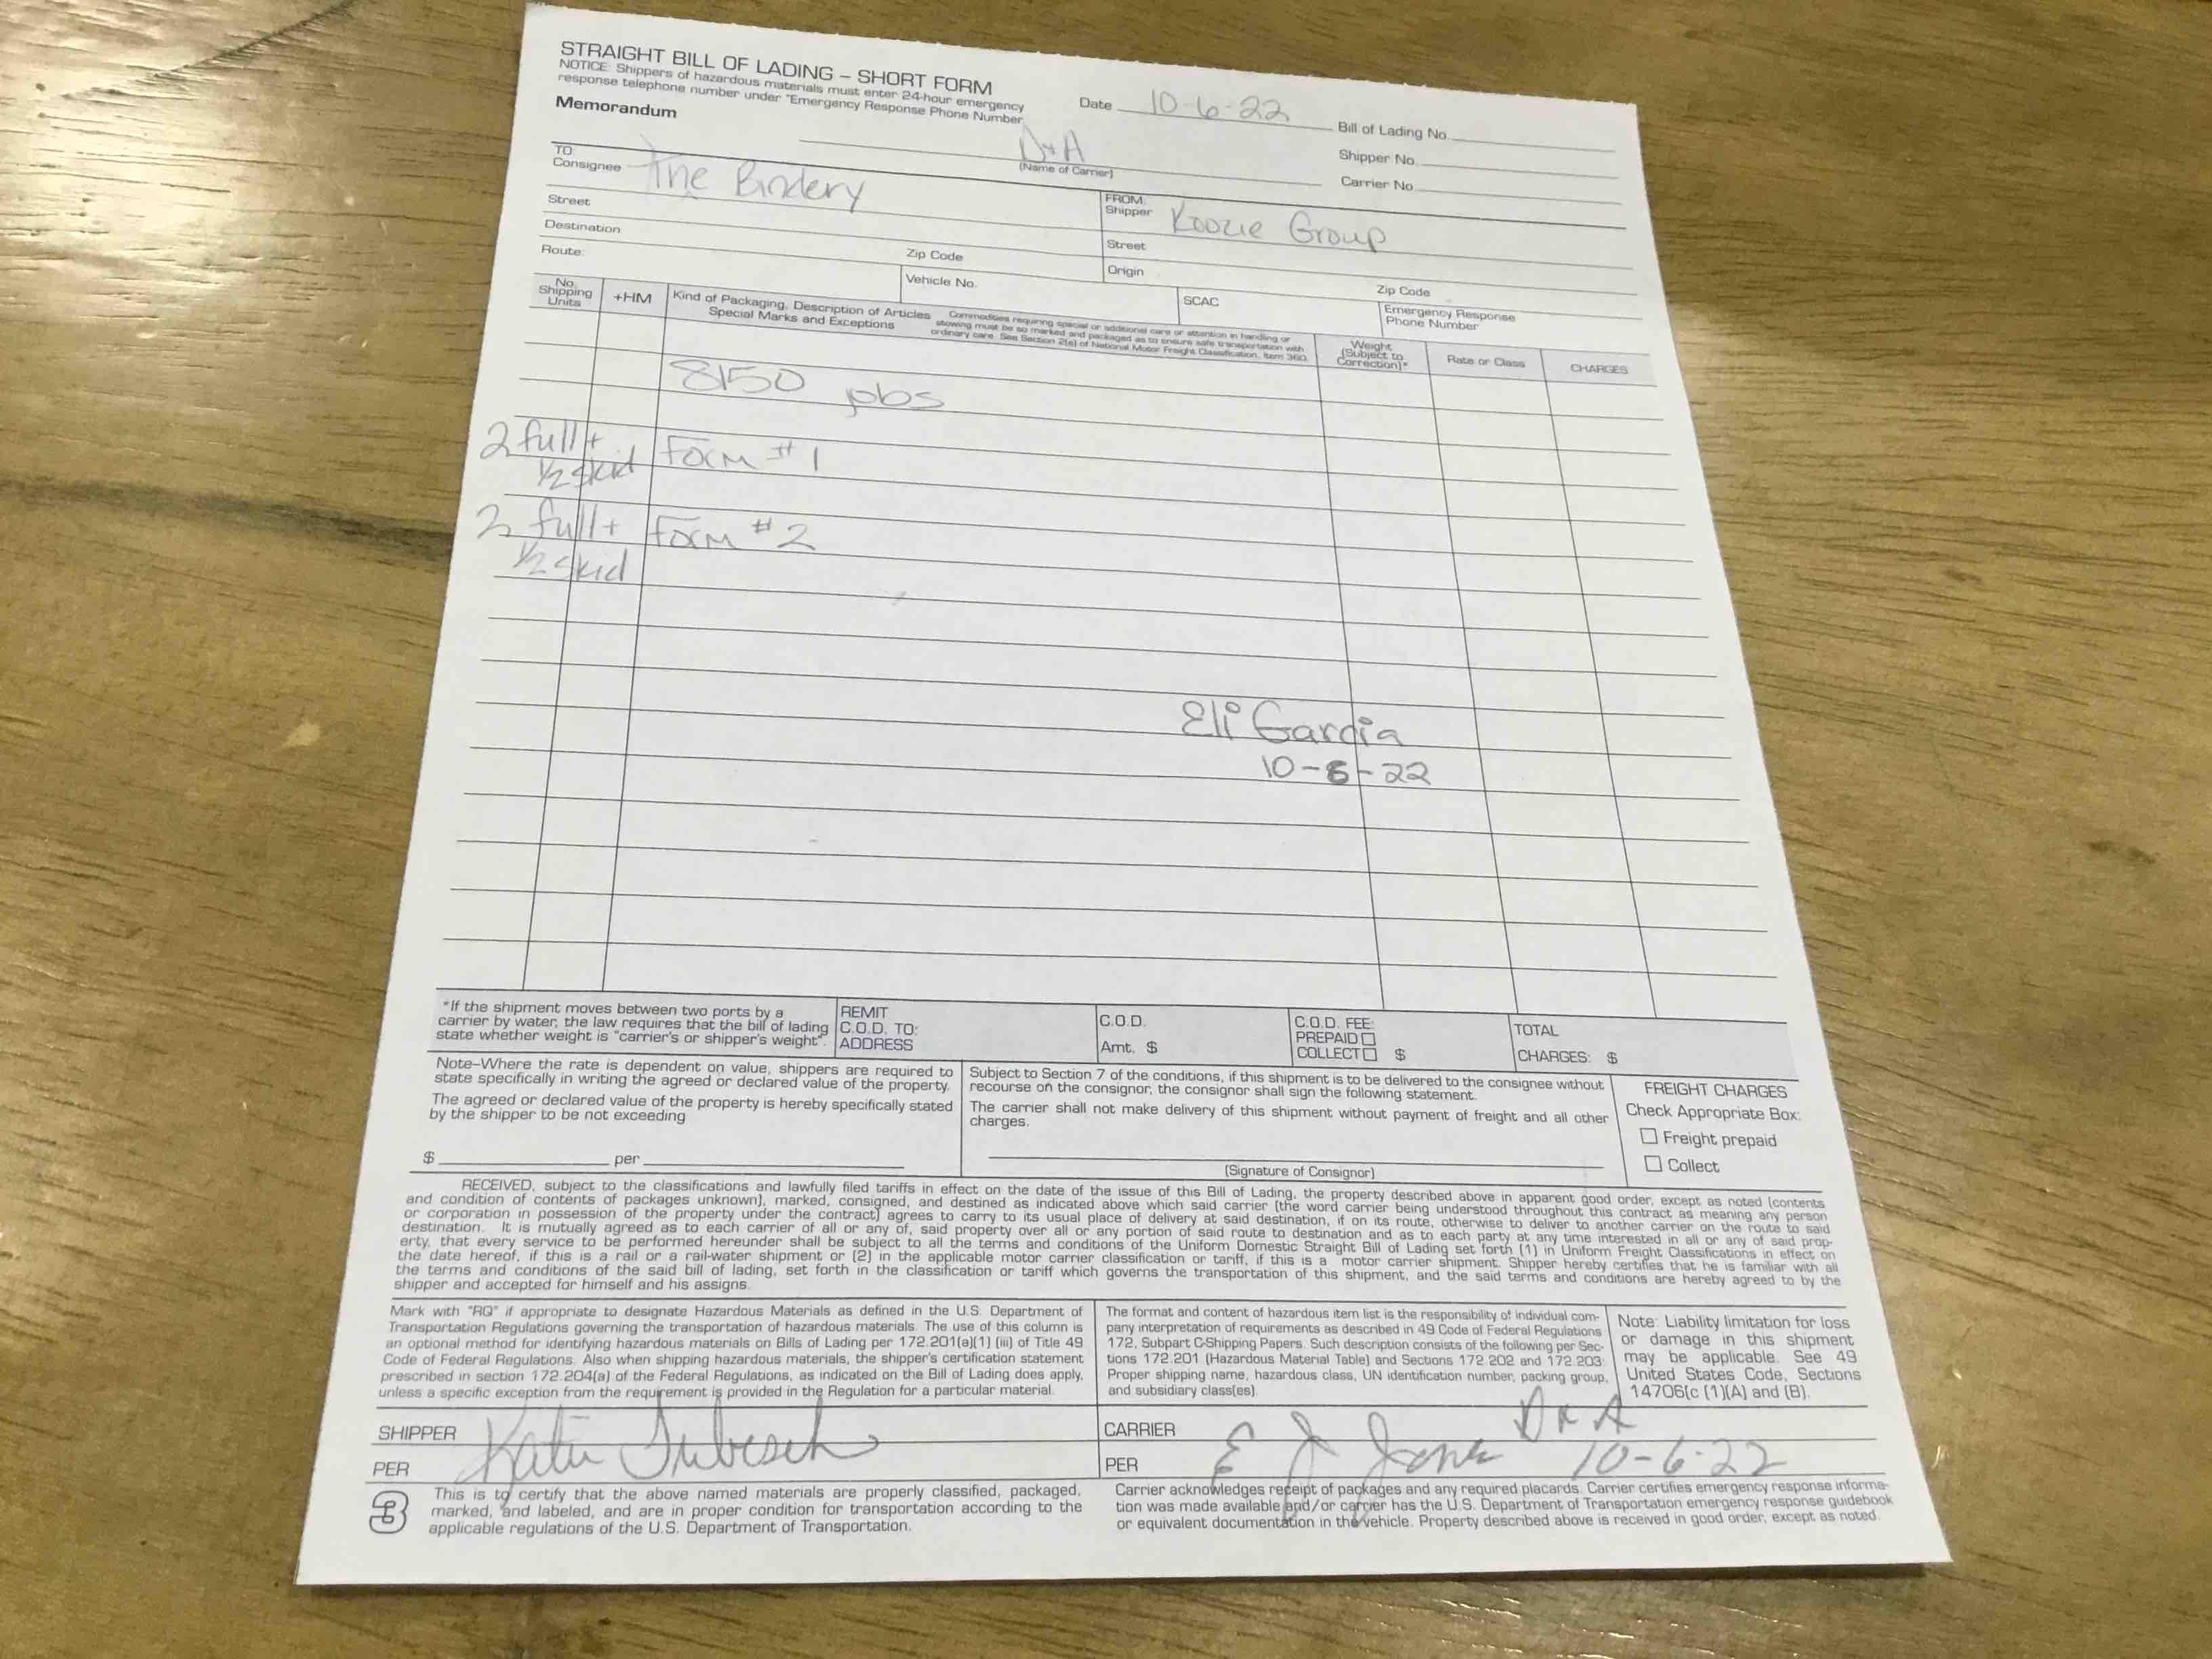 STRAIGHT BILL OF LADING – SHORT FORM
NOTICE: Shippers of hazardous materials must enter 24-hour emergency
response telephone number under "Emergency Response Phone Number.
Memorandum
Date 10-6-22
Bill of Lading No.
Shipper No.
Carrier No.
D+A
(Name of Carrier)
TO:
Consignee The Bindery
Street
Destination
Zip Code
Route:
Vehicle No.
FROM:
Shipper Koozie Group
Street
Origin
Zip Code
SCAC
Emergency Response
Phone Number
No.
Shipping
Units
+HM
Kind of Packaging, Description of Articles
Special Marks and Exceptions
Commodities requiring special or additional care or attention in handling or
stowing must be so marked and packaged as to ensure safe transportation with
ordinary care. See Section 2(e) of National Motor Freight Classification, Item 360.
Weight
(Subject to
Correction)*
Rate or Class
CHARGES
8150 jobs
2 full +
1/2 skid
Form #1
2 full +
1/2 skid
Form #2
Eli Garcia
10-6-22
*If the shipment moves between two ports by a
carrier by water, the law requires that the bill of lading
state whether weight is "carrier's or shipper's weight".
REMIT
C.O.D. TO:
ADDRESS
C.O.D.
Amt. $
C.O.D. FEE:
PREPAID
COLLECT $
TOTAL
CHARGES: $
Note–Where the rate is dependent on value, shippers are required to
state specifically in writing the agreed or declared value of the property.
The agreed or declared value of the property is hereby specifically stated
by the shipper to be not exceeding
$ per
Subject to Section 7 of the conditions, if this shipment is to be delivered to the consignee without
recourse on the consignor, the consignor shall sign the following statement.
The carrier shall not make delivery of this shipment without payment of freight and all other
charges.
(Signature of Consignor)
FREIGHT CHARGES
Check Appropriate Box:
Freight prepaid
Collect
RECEIVED, subject to the classifications and lawfully filed tariffs in effect on the date of the issue of this Bill of Lading, the property described above in apparent good order, except as noted (contents
and condition of contents of packages unknown), marked, consigned, and destined as indicated above which said carrier (the word carrier being understood throughout this contract as meaning any person
or corporation in possession of the property under the contract) agrees to carry to its usual place of delivery at said destination, if on its route, otherwise to deliver to another carrier on the route to said
destination. It is mutually agreed as to each carrier of all or any of, said property over all or any portion of said route to destination and as to each party at any time interested in all or any of said prop-
erty, that every service to be performed hereunder shall be subject to all the terms and conditions of the Uniform Domestic Straight Bill of Lading set forth (1) in Uniform Freight Classifications in effect on
the date hereof, if this is a rail or a rail-water shipment or (2) in the applicable motor carrier classification or tariff, if this is a motor carrier shipment. Shipper hereby certifies that he is familiar with all
the terms and conditions of the said bill of lading, set forth in the classification or tariff which governs the transportation of this shipment, and the said terms and conditions are hereby agreed to by the
shipper and accepted for himself and his assigns.
Mark with "RQ" if appropriate to designate Hazardous Materials as defined in the U.S. Department of
Transportation Regulations governing the transportation of hazardous materials. The use of this column is
an optional method for identifying hazardous materials on Bills of Lading per 172.201(a)(1) (iii) of Title 49
Code of Federal Regulations. Also when shipping hazardous materials, the shipper's certification statement
prescribed in section 172.204(a) of the Federal Regulations, as indicated on the Bill of Lading does apply,
unless a specific exception from the requirement is provided in the Regulation for a particular material.
The format and content of hazardous item list is the responsibility of individual com-
pany interpretation of requirements as described in 49 Code of Federal Regulations
172, Subpart C-Shipping Papers. Such description consists of the following per Sec-
tions 172.201 (Hazardous Material Table) and Sections 172.202 and 172.203:
Proper shipping name, hazardous class, UN identification number, packing group,
and subsidiary class(es).
Note: Liability limitation for loss
or damage in this shipment
may be applicable. See 49
United States Code, Sections
14706(c (1)(A) and (B).
SHIPPER
PER Katie
CARRIER D & A
PER E J 10-6-22
3
This is to certify that the above named materials are properly classified, packaged,
marked, and labeled, and are in proper condition for transportation according to the
applicable regulations of the U.S. Department of Transportation.
Carrier acknowledges receipt of packages and any required placards. Carrier certifies emergency response informa-
tion was made available and/or carrier has the U.S. Department of Transportation emergency response guidebook
or equivalent documentation in the vehicle. Property described above is received in good order, except as noted.